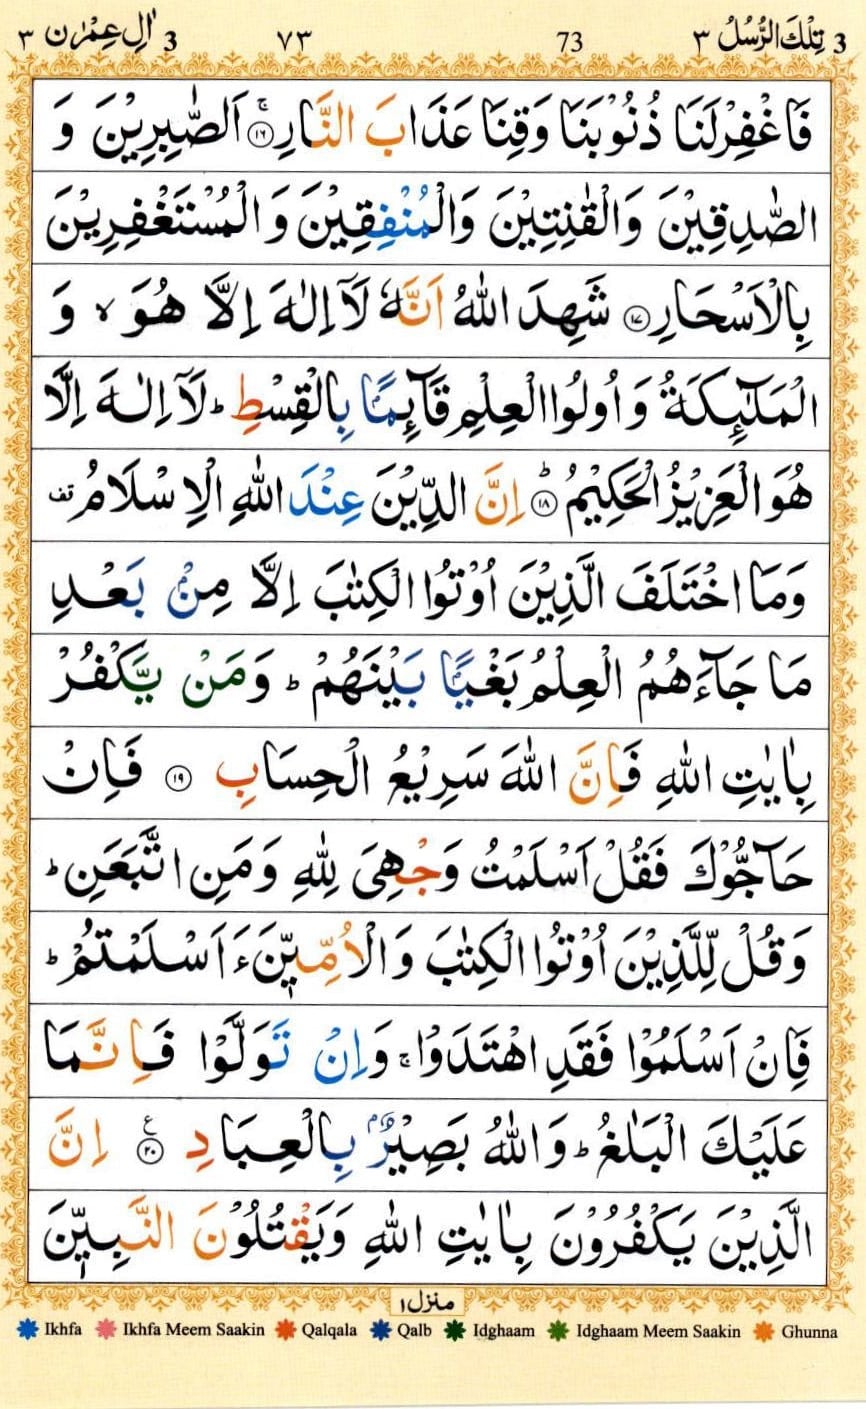 3 تِلْكَ الرُّسُلُ ٣ 73 ٧٣ 3 اٰلِ عِمْرٰن ٣
فَاغْفِرْلَنَا ذُنُوْبَنَا وَقِنَا عَذَابَ النَّارِ ۚ‏﴿۱۶﴾ اَلصّٰبِرِيْنَ وَ
الصّٰدِقِيْنَ وَالْقٰنِتِيْنَ وَالْمُنْفِقِيْنَ وَ الْمُسْتَغْفِرِيْنَ
بِالْاَسْحَارِ ﴿۱۷﴾ شَهِدَ اللّٰهُ اَنَّهٗ لَاۤ اِلٰهَ اِلَّا هُوَ ۙ وَ
الْمَلٰٓئِكَةُ وَ اُولُوا الْعِلْمِ قَآئِمًۢا بِالْقِسْطِ ؕ لَاۤ اِلٰهَ اِلَّا
هُوَ الْعَزِيْزُ الْحَكِيْمُ ؕ﴿۱۸﴾ اِنَّ الدِّيْنَ عِنْدَ اللّٰهِ الْاِسْلَامُ قف
وَمَا اخْتَلَفَ الَّذِيْنَ اُوْتُوا الْكِتٰبَ اِلَّا مِنْۢ بَعْدِ
مَا جَآءَهُمُ الْعِلْمُ بَغْيًۢا بَيْنَهُمْ ؕ وَمَنْ يَّكْفُرْ
بِاٰيٰتِ اللّٰهِ فَاِنَّ اللّٰهَ سَرِيْعُ الْحِسَابِ ﴿۱۹﴾ فَاِنْ
حَآجُّوْكَ فَقُلْ اَسْلَمْتُ وَجْهِىَ لِلّٰهِ وَمَنِ اتَّبَعَنِ ؕ
وَقُلْ لِّلَّذِيْنَ اُوْتُوا الْكِتٰبَ وَالْاُمِّيّٖنَ ءَاَسْلَمْتُمْ ؕ
فَاِنْ اَسْلَمُوْا فَقَدِ اهْتَدَوْا ۚ وَاِنْ تَوَلَّوْا فَاِنَّمَا
عَلَيْكَ الْبَلٰغُ ؕ وَاللّٰهُ بَصِيْرٌۢ بِالْعِبَادِ ﴿۲۰﴾ ع اِنَّ
الَّذِيْنَ يَكْفُرُوْنَ بِاٰيٰتِ اللّٰهِ وَيَقْتُلُوْنَ النَّبِيّٖنَ
منزل ۱
Ikhfa Ikhfa Meem Saakin Qalqala Qalb Idghaam Idghaam Meem Saakin Ghunna